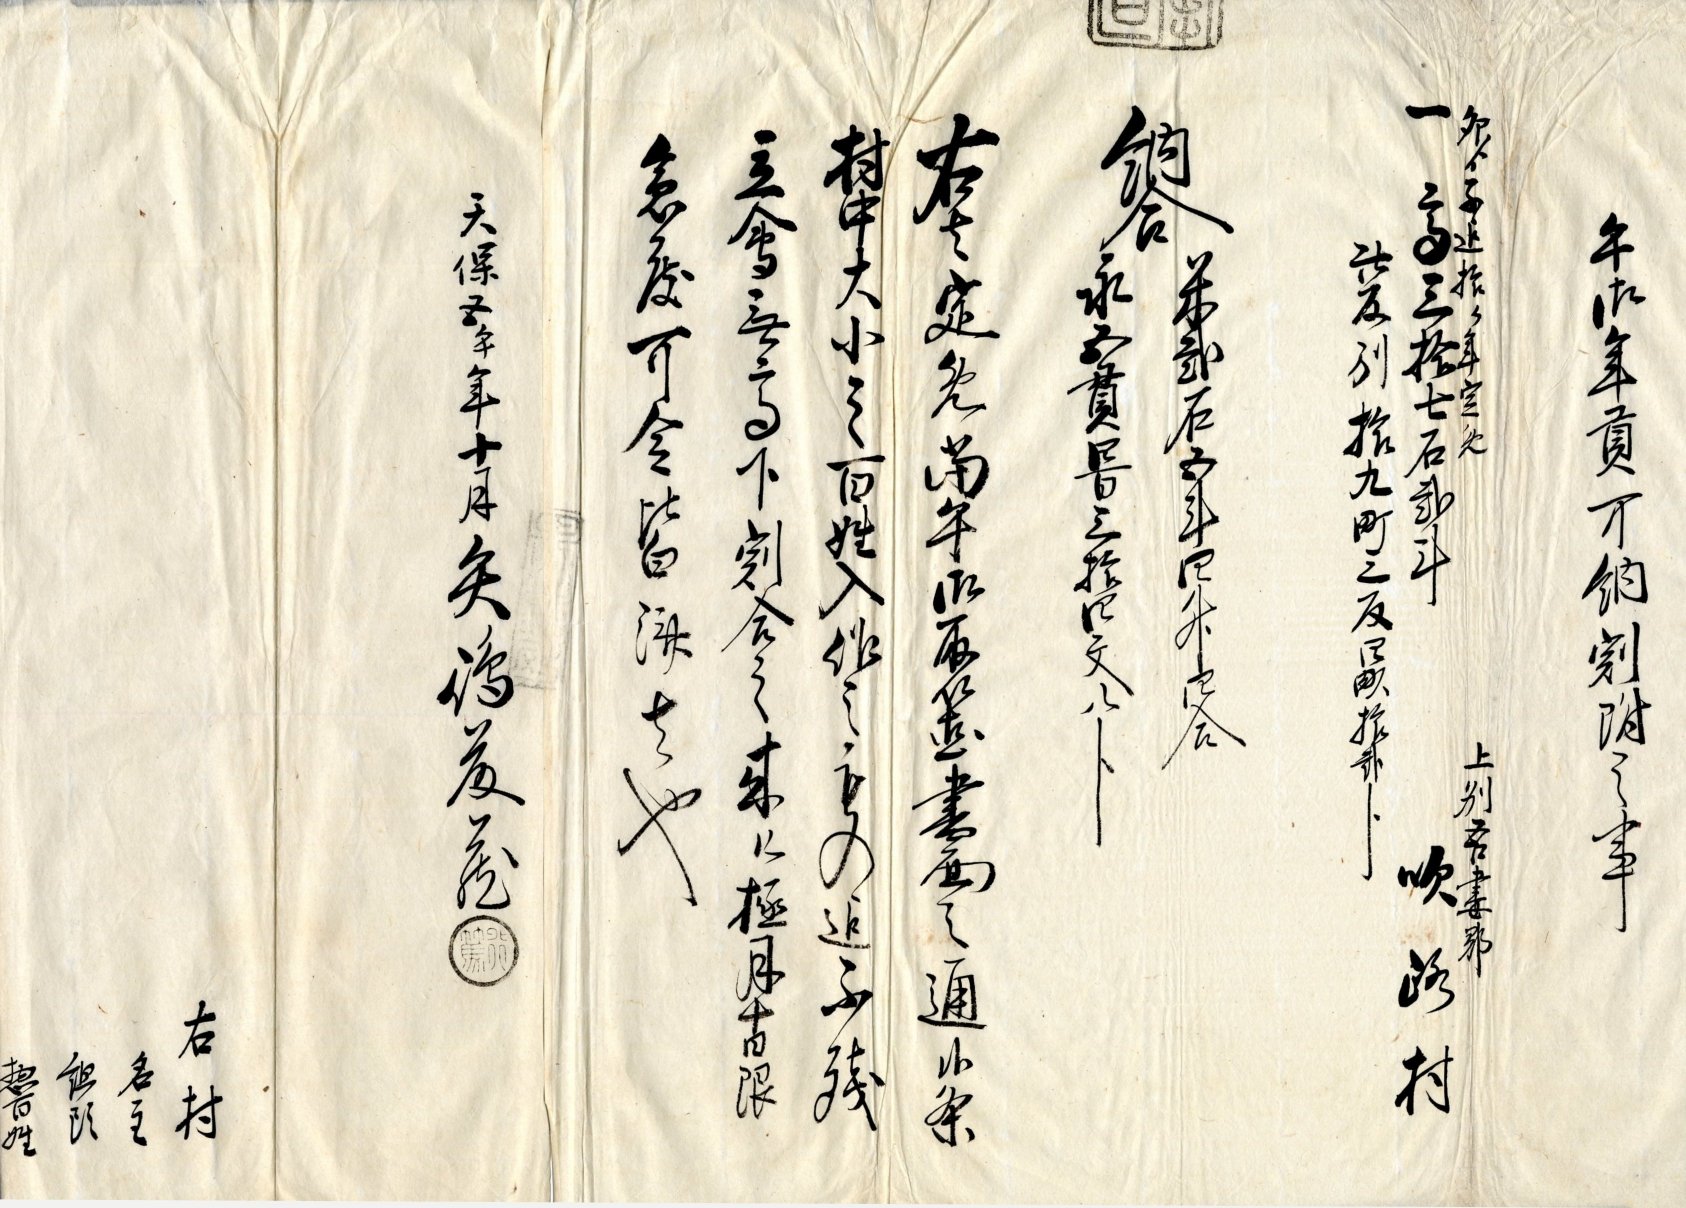 午御年貢可納割附之事
一高三拾七石弐斗
上州吾妻郡
吹路村
此反別拾九町三反四畝拾弐卜
米弐石五斗四升
納合
永五貫
三拾四文八卜
右者定免当午御取箇書面之通候条
村中大小之百姓入作之者迄不残
立会無高下割合之来ル極月十日限
急度可令皆済者也
天保五午年十月
右村
名主
組頭
惣百姓